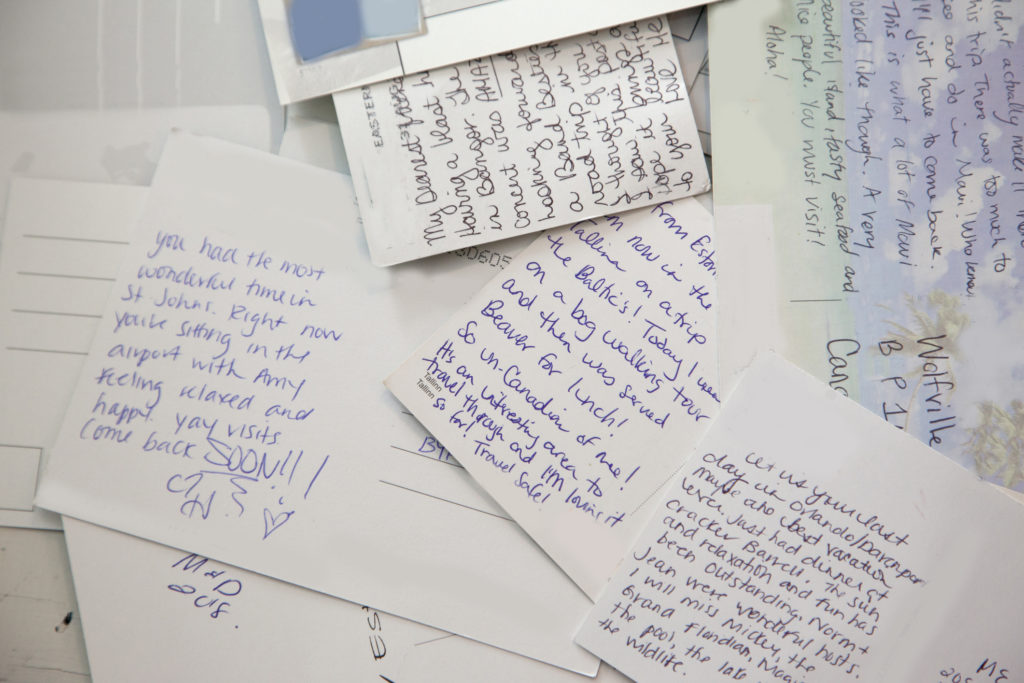 you had the most
wonderful time in
St Johns. Right now
you're sitting in the
airport with Amy
feeling relaxed and
happy. yay visits
Come back SOON!!!
M+D
2018.
EASTERN
My Dearest
Having a blast
in Bangor. The
concert was AHHH
looking forward
a Band Besties
road trip in the
thought of you
to you
love
60605
From Eston
Tallinn on a trip
now in the
the Baltic's! Today I went
on a bog walking tour
and then was served
Beaver for lunch!
So un-Canadian of me!
It's an interesting area to
travel through and I'm loving it
so far! Travel Safe!
Tallinn
Tallinn
didn't actually make it
this trip. There was too much to
see and do in Maui! Who knew
I'll just have to come back.
This is what a lot of Maui
looked like though. A very
beautiful island, tasty seafood and
nice people. You must visit!
Aloha!
Wolfville
B P 1
Cana
Let us your last
day in Orlando/Davenport
maybe and best vacation
ever. Just had dinner at
cracker Barrell. The sun
and relaxation and fun has
been outstanding. Norm +
Jean were wonderful hosts.
I will miss Mickey, the
Grand Floridian, Magic
the pool, the late
the wildlife.